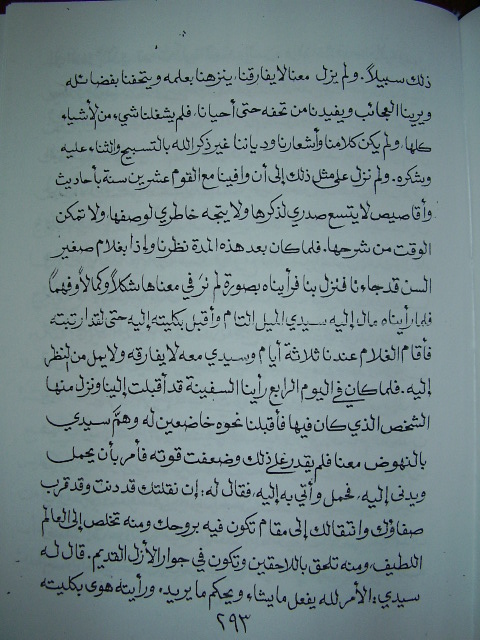 ذلك سبيلاً. ولم يزل معنا لا يفارقنا، ينزهنا بعلمه ويتحفنا بفضائله
ويرينا العجائب ويفيدنا من تحفه حتى أحيانا، فلم يشغلنا شيء من الأشياء
كلها، ولم يكن كلامنا وأشعارنا ودياننا غير ذكر الله بالتسبيح والثناء عليه
وبشكره. ولم نزل على مثل ذلك إلى أن وافينا مع القوم عشرين سنة بأحاديث
وأقاصيص لا يتسع صدري لذكرها ولا يتجه خاطري لوصفها، ولا تمكن
الوقت من شرحها. فلما كان بعد هذه المدة نظرنا وإذا بغلام صغير
السن قد جاءنا فنزل بنا فرأيناه بصورة لم نر في معناها شكلاً وكمالاً وفهماً
فلما رأيناه مال إليه سيدي الميل التام وأقبل بكليته إليه حتى لقد ارتبته
فأقام الغلام عندنا ثلاثة أيام وسيدي معه لا يفارقه ولا يمل من النظر
إليه. فلما كان في اليوم الرابع رأينا السفينة قد أقبلت إلينا ونزل منها
الشخص الذي كان فيها فأقبلنا نحوه خاضعين له وهمَّ سيدي
بالنهوض معنا فلم يقدر على ذلك وضعفت قوته فأمر بأن يحمل
ويدنى إليه، فحمل وأتي به إليه، فقال له: إن نقلتك قد دنت وقد قرب
صفاؤك وانتقالك إلى مقام تكون فيه بروحك ومنه تخلص إلى العالم
اللطيف، ومنه تلحق باللاحقين وتكون في جوار الأزل القديم. قال له
سيدي: الأمر لله يفعل ما يشاء ويحكم ما يريد. ورأيته هوى بكليته
٢٩٣